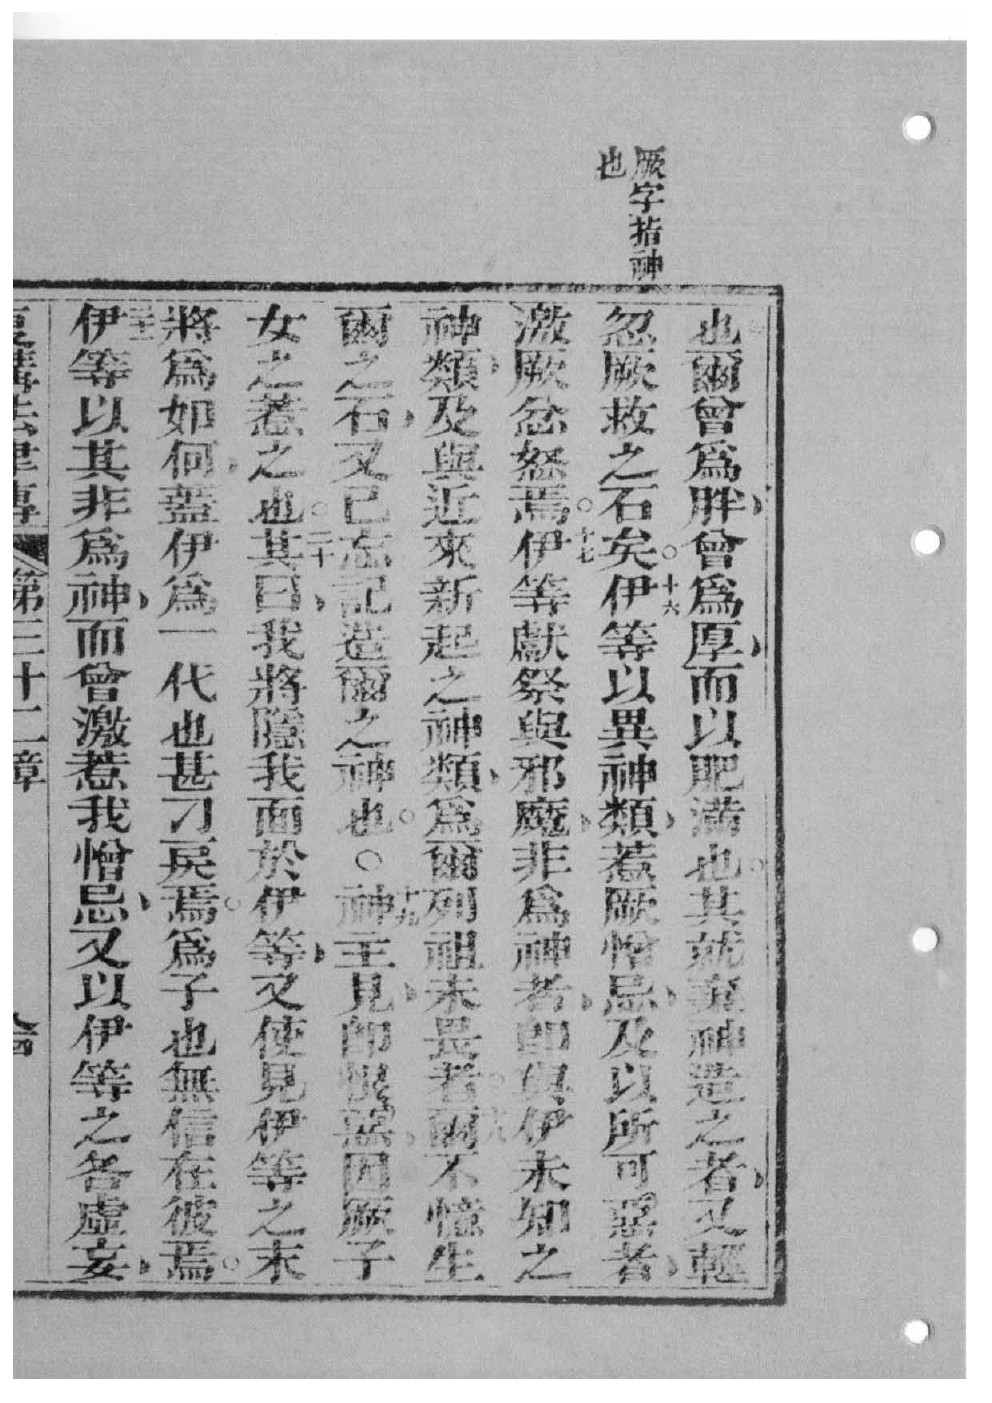 厥字指神
也
也爾曾為胖曾為厚而以肥滿也其就棄神造之者又輕
忽厥救之石矣十六伊等以異神類惹厥憎忌及以所可惡者
激厥忿怒焉十七伊等獻祭與邪魔非為神者即與伊未知之
神類及與近來新起之神類為爾列祖未畏者十八爾不憶生
爾之石又已忘記造爾之神也○十九神主見即恨惡因厥子
女之惹之也二十其曰我將隱我面於伊等又使見伊等之末
將為如何蓋伊為一代也甚刁戾焉為子也無信在彼焉
伊等以其非為神而曾激惹我憎忌又以伊等之各虛妄
復講法律專 第三十二章